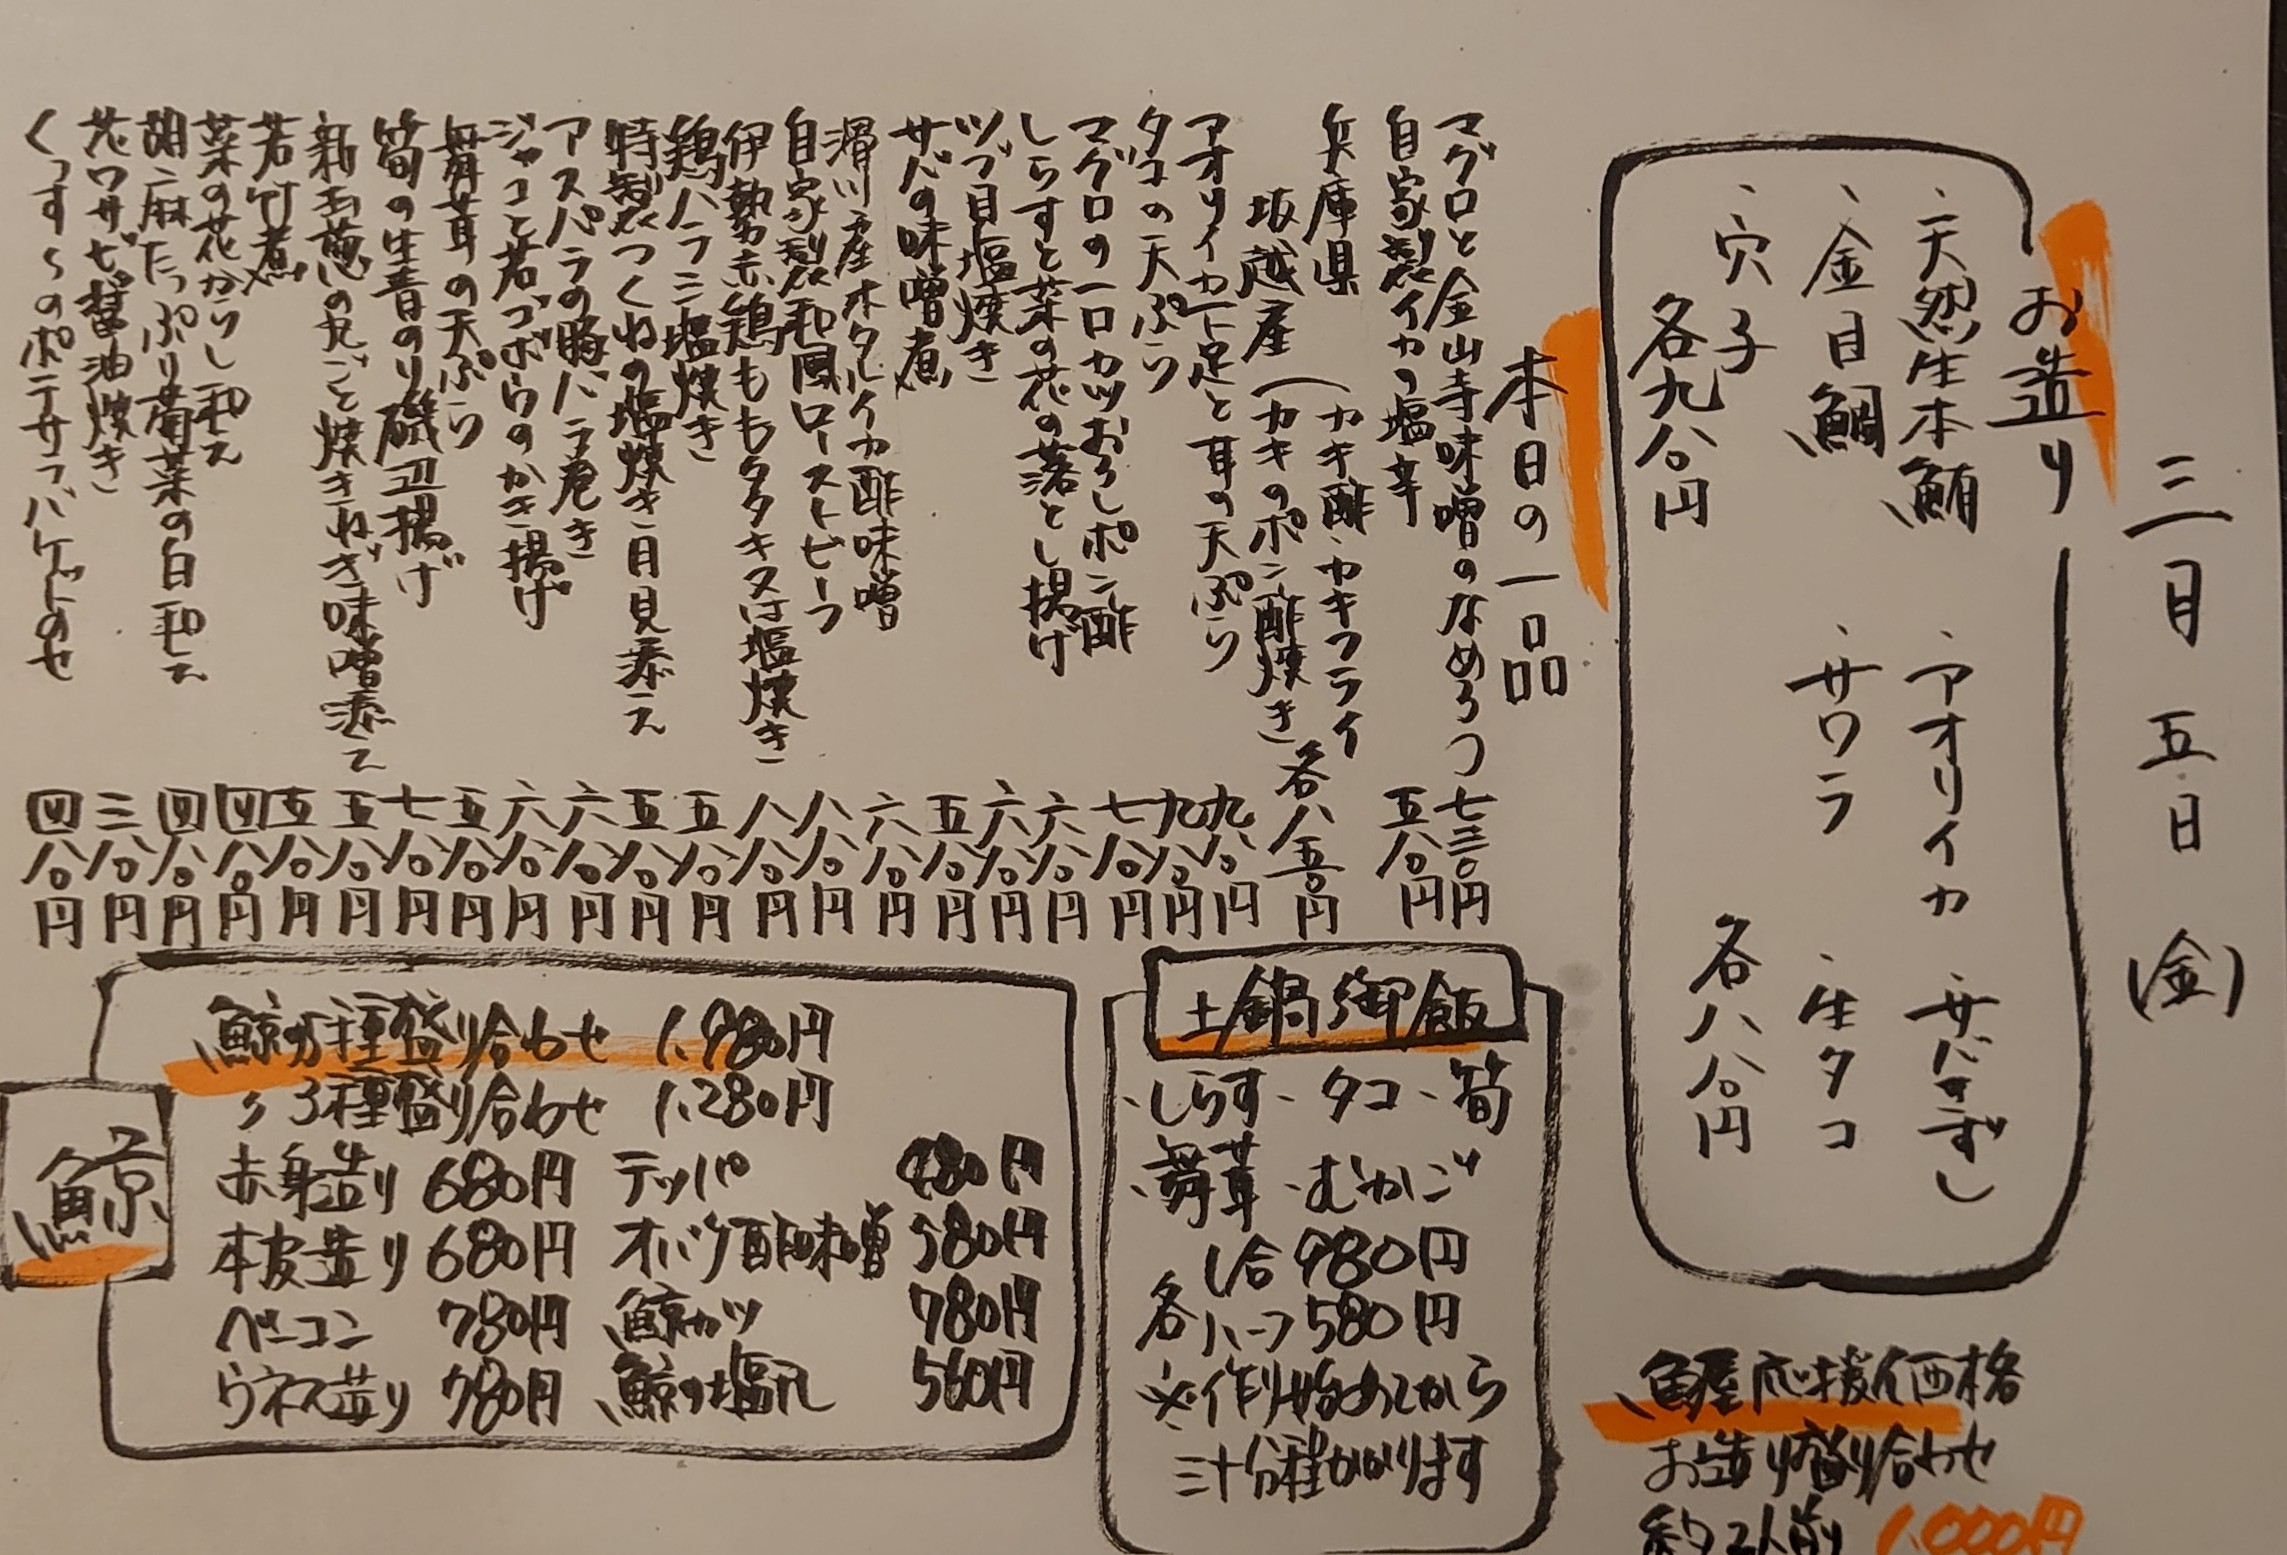 三月五日(金)
お造り
、天然生本鮪 、アオリイカ 、サバきずし
、金目鯛 、サワラ 、生タコ
、穴子
各九八〇円 各八八〇円
魚屋応援価格
お造り盛り合わせ
約2人前 1,000円
本日の一品
マグロと金山寺味噌のなめろう 七三〇円
自家製イカの塩辛 五八〇円
兵庫県坂越産(カキ酢、カキフライ
カキのポン酢焼き 各八五〇円
アオリイカ下足と耳の天ぷら 九八〇円
タコの天ぷら 九八〇円
マグロの一口カツおろしポン酢 七八〇円
しらすと菜の花の落とし揚げ 六八〇円
ツブ貝塩焼き 六八〇円
サバの味噌煮 五八〇円
滑川産ホタルイカ酢味噌 六八〇円
自家製和風ローストビーフ 八八〇円
伊勢赤鶏ももタタキ又は塩焼き 八八〇円
鶏ハラミ塩焼き 五八〇円
特製つくねの塩焼き月見添え 五八〇円
アスパラの豚バラ巻き 六八〇円
ジャコと若ゴボウのかき揚げ 六八〇円
舞茸の天ぷら 五八〇円
筍の生青のり磯辺揚げ 七八〇円
新玉葱の丸ごと焼きねぎ味噌添え 五八〇円
若竹煮 五八〇円
菜の花からし和え 四八〇円
胡麻たっぷり菊菜の白和え 四八〇円
花ワサビ醤油焼き 三八〇円
くっすぅのポテサラバケットのせ 四八〇円
土鍋御飯
、しらす、タコ、筍
、舞茸、むかご
各 1合 980円
ハーフ 580円
※作り始めてから
三十分程かかります
鯨
鯨5種盛り合わせ 1,980円
〃 3種盛り合わせ 1,280円
赤身造り 680円 テッパ 480円
本皮造り 680円 オバケ酢味噌 580円
ベーコン 780円 鯨カツ 780円
ウネス造り 780円 鯨の塩 560円